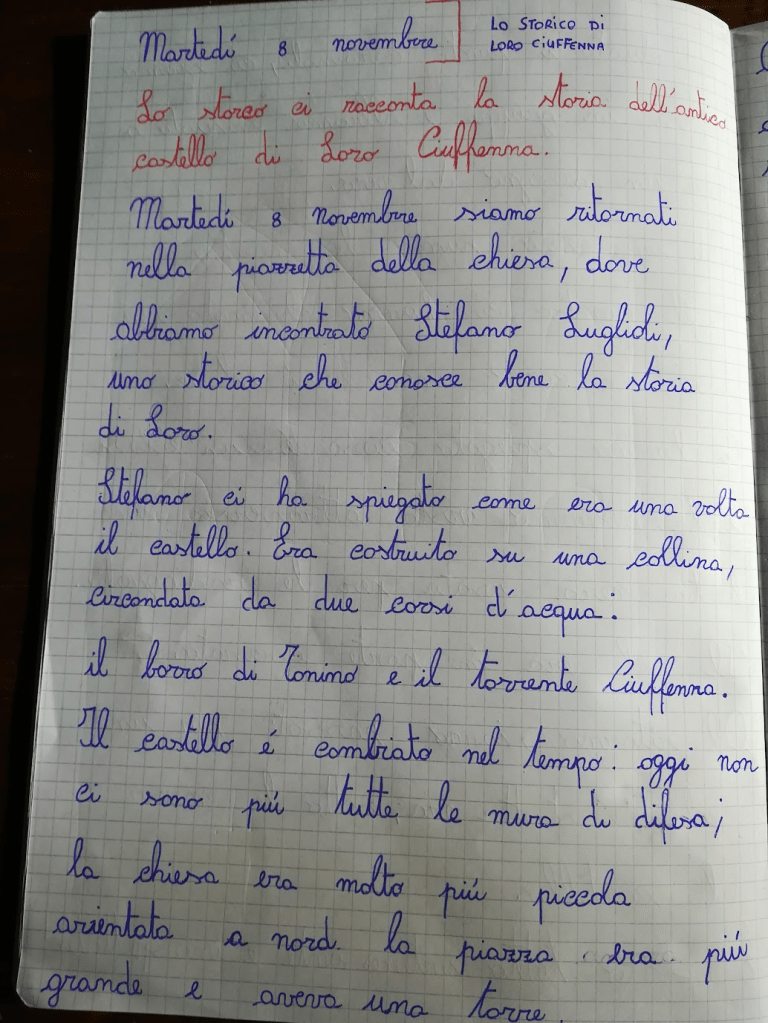 Martedí 8 novembre
LO STORICO DI
LORO CIUFFENNA
Lo storco ci racconta la storia dell'antico
castello di Loro Ciuffenna.
Martedí 8 novembre siamo ritornati
nella piazzetta della chiesa, dove
abbiamo incontrato Stefano Luglidi,
uno storico che conosce bene la storia
di Loro.
Stefano ci ha spiegato come era una volta
il castello. Era costruito su una collina,
circondata da due corsi d'acqua:
il borro di Tonino e il torrente Ciuffenna.
Il castello é cambiato nel tempo: oggi non
ci sono piú tutte le mura di difesa;
la chiesa era molto piú piccola
arientata a nord. la piazza era piú
grande e aveva una torre.